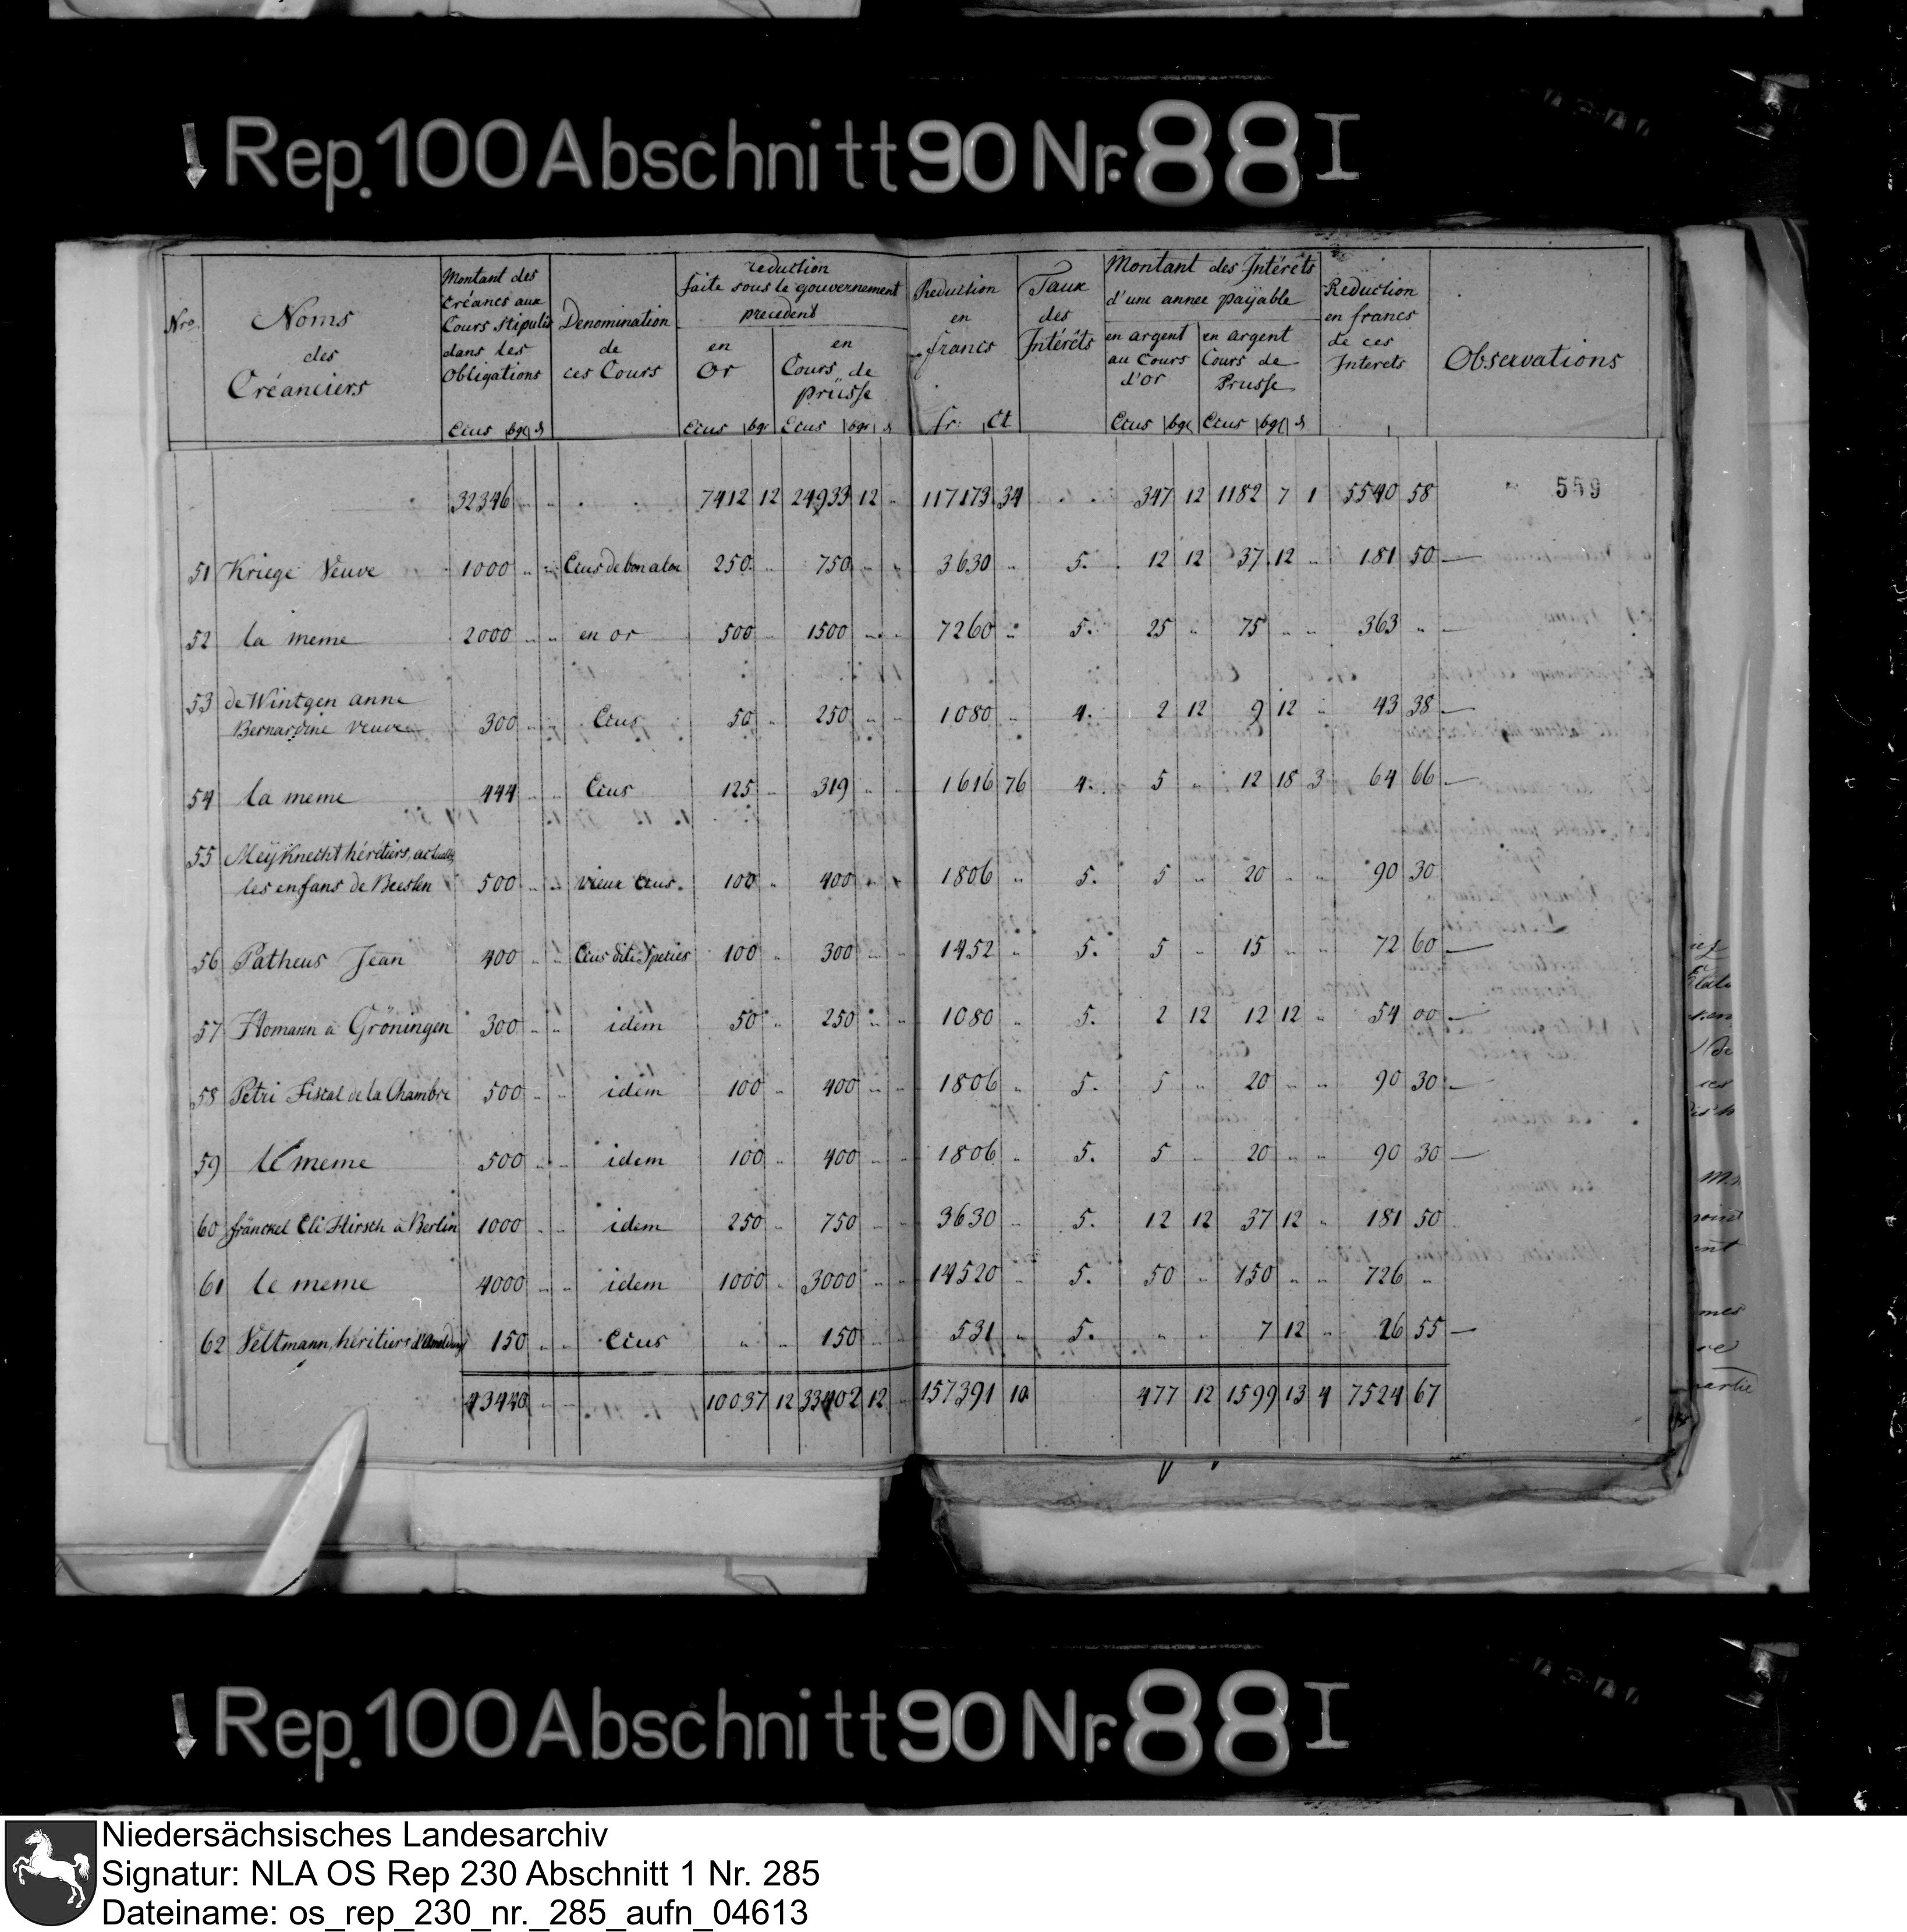 Rep. 100 Abschnitt 90 Nr. 88 I
Nro. | Noms des Créanciers | Montant des Créances aux Cours stipulés dans les Obligations Ecus bgr d | Denomination de ces Cours | reduction faite sous le gouvernement precedent en Or Ecus bgr | en Cours de prüsse Ecus bgr d | Reduction en francs fr: Ct | Taux des Intérêts | Montant des Intérêts d'une annee payable en argent au Cours d'or Ecus bgr | en argent Cours de Prusse Ecus bgr d | Reduction en francs de ces Interets | Observations
32346 .. .. . . 7412 12 24933 12 .. 117173 34 . . 347 12 1182 7 1 5540 58 559
51 Kriege Veuve 1000 .. .. Ecus de bon aloi 250 .. 750 .. .. 3630 .. 5. 12 12 37 12 .. 181 50 —
52 la meme 2000 .. .. en or 500 .. 1500 .. .. 7260 .. 5. 25 .. 75 .. .. 363 .. —
53 de Wintgen anne
Bernardine veuve 300 .. .. Ecus 50 .. 250 .. .. 1080 .. 4. 2 12 9 12 .. 43 38 —
54 la meme 444 .. .. Ecus 125 .. 319 .. .. 1616 76 4. 5 .. 12 18 3 64 66 —
55 Meyknecht héritiers,
les enfans de Beesten 500 .. .. vieux Ecus. 100 .. 400 .. .. 1806 .. 5. 5 .. 20 .. .. 90 30
56 Patheus Jean 400 .. .. Ecus dits Speties 100 .. 300 .. .. 1452 .. 5. 5 .. 15 .. .. 72 60 —
57 Homann a Gröningen 300 .. .. idem 50 .. 250 .. .. 1080 .. 5. 2 12 12 12 .. 54 00 —
58 Petri Fiscal de la Chambre 500 .. .. idem 100 .. 400 .. .. 1806 .. 5. 5 .. 20 .. .. 90 30 —
59 le meme 500 .. .. idem 100 .. 400 .. .. 1806 .. 5. 5 .. 20 .. .. 90 30 —
60 fränckel Eli Hirsch a Berlin 1000 .. .. idem 250 .. 750 .. .. 3630 .. 5. 12 12 37 12 .. 181 50
61 le meme 4000 .. .. idem 1000 .. 3000 .. .. 14520 .. 5. 50 .. 150 .. .. 726 ..
62 Veltmann, héritiers 150 .. .. Ecus .. .. 150 .. .. 531 .. 5. .. .. 7 12 .. 26 55 —
43440 .. .. 10037 12 33402 12 .. 157391 10 477 12 1599 13 4 7524 67
Rep. 100 Abschnitt 90 Nr. 88 I
Niedersächsisches Landesarchiv
Signatur: NLA OS Rep 230 Abschnitt 1 Nr. 285
Dateiname: os_rep_230_nr._285_aufn_04613